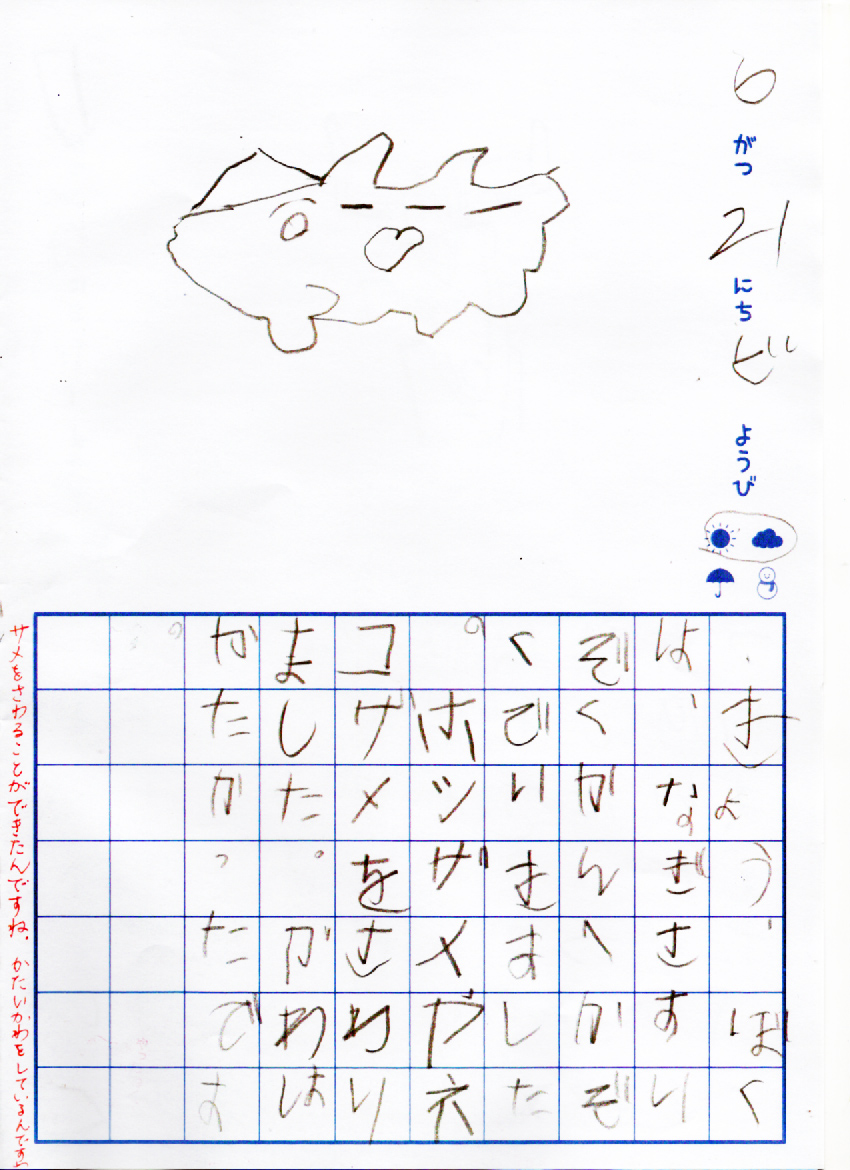 6がつ21にちどようび
きょう、ぼく
は、なぎさすい
ぞくかんへかぞ
くでいきました
。ホシザメやネ
コザメをさわり
ました。がわは
かたかったです
。
サメをさわることができたんですね。かたいかわをしているんですね